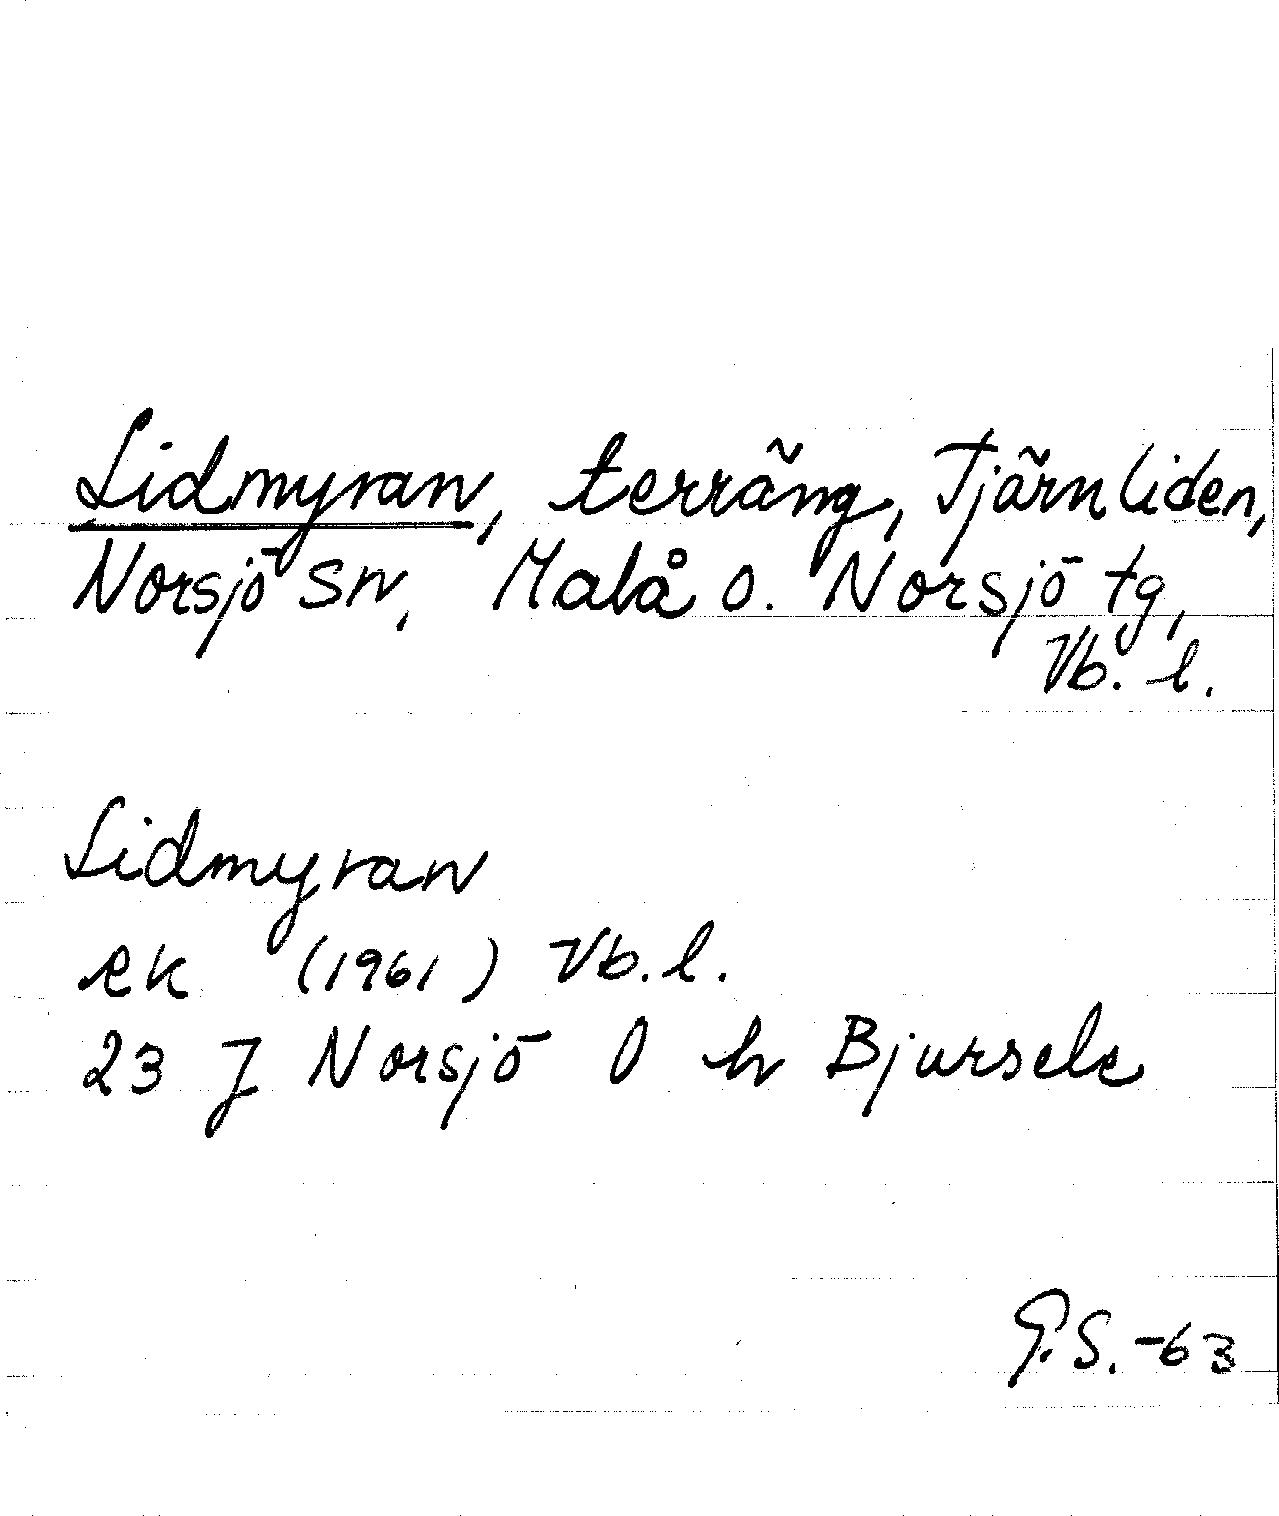 Lidmyran, terräng, Tjärnliden,
Norsjö sn, Malå o. Norsjö tg,
Vb. l.
Lidmyran
ek (1961) Vb. l.
23 J Norsjö O h Bjursele
G.S. -63